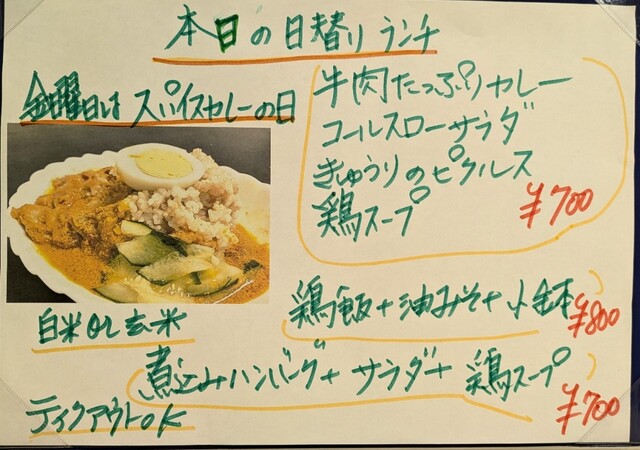 本日の日替りランチ
金曜日は スパイスカレーの日
牛肉たっぷりカレー
コールスローサラダ
きゅうりのピクルス
鶏スープ
¥700
鶏飯+油みそ+小鉢
¥800
白米or玄米
煮込みハンバーグ+サラダ+鶏スープ
¥700
テイクアウトOK